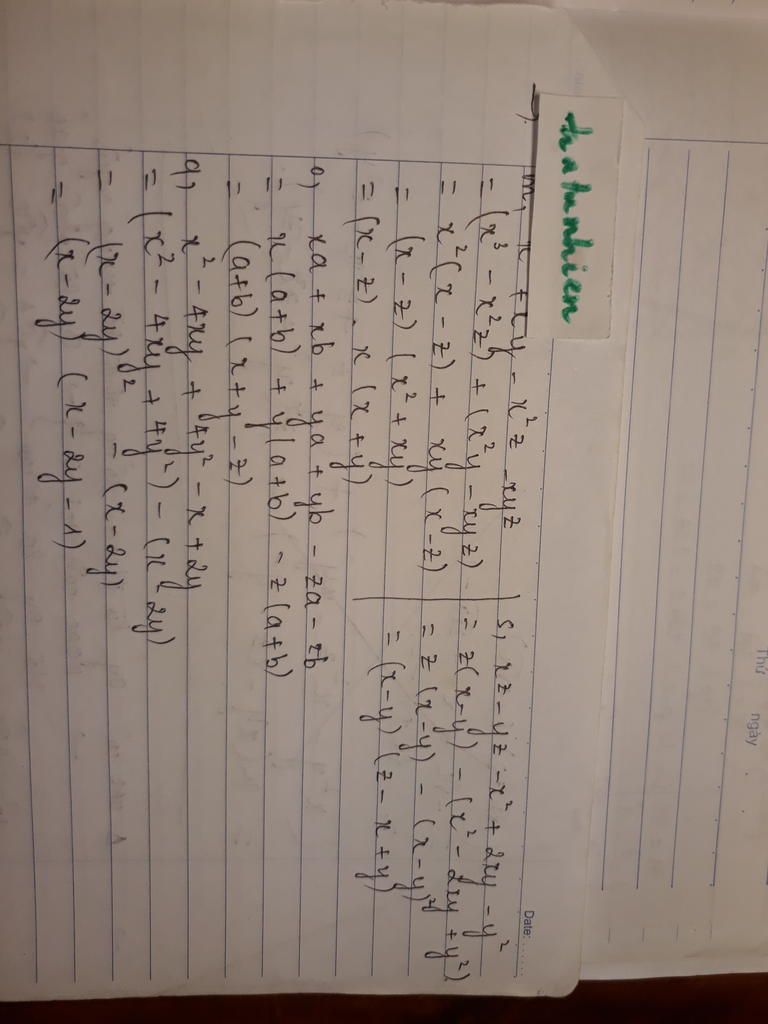 hatunhien
Thứ ngày
Date:
m, x + x y - x²z - xyz
= (x³ - x²z) + (x²y - xyz)
= x²(x - z) + xy(x - z)
= (x - z) (x² + xy)
= (x - z) . x (x + y)
s, xz - yz - x² + 2xy - y²
= z(x - y) - (x² - 2xy + y²)
= z (x - y) - (x - y)²
= (x - y) (z - x + y)
o, xa + xb + ya + yb - za - zb
= x (a + b) + y (a + b) - z (a + b)
= (a + b) (x + y - z)
q, x² - 4xy + 4y² - x + 2y
= (x² - 4xy + 4y²) - (x - 2y)
= (x - 2y)² - (x - 2y)
= (x - 2y) (x - 2y - 1)